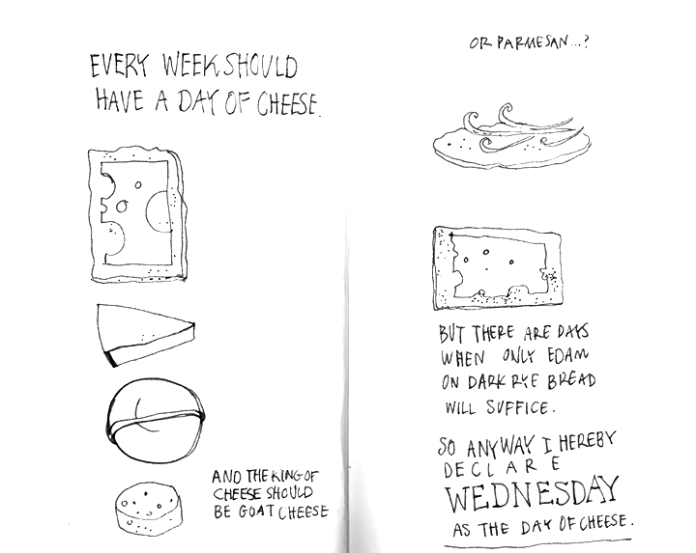 EVERY WEEK SHOULD
HAVE A DAY OF CHEESE.
AND THE KING OF
CHEESE SHOULD
BE GOAT CHEESE
OR PARMESAN...?
BUT THERE ARE DAYS
WHEN ONLY EDAM
ON DARK RYE BREAD
WILL SUFFICE.
SO ANYWAY I HEREBY
DECLARE
WEDNESDAY
AS THE DAY OF CHEESE.